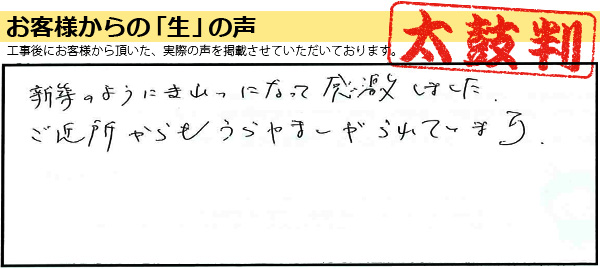 お客様からの「生」の声
太鼓判
工事後にお客様から頂いた、実際の声を掲載させていただいております。
新築のようにきれいになって感激しました.
ご近所からもうらやましがられています.